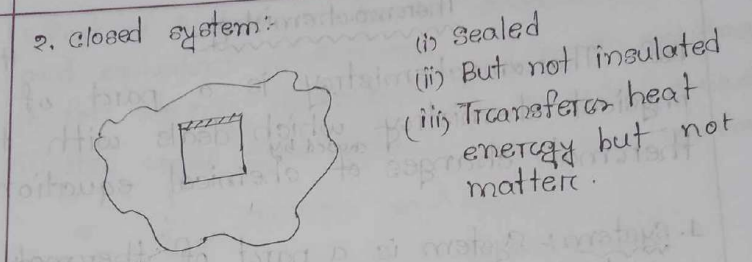 2. Closed system:-
(i) Sealed
(ii) But not insulated
(iii) Transfers heat
energy but not
matter.